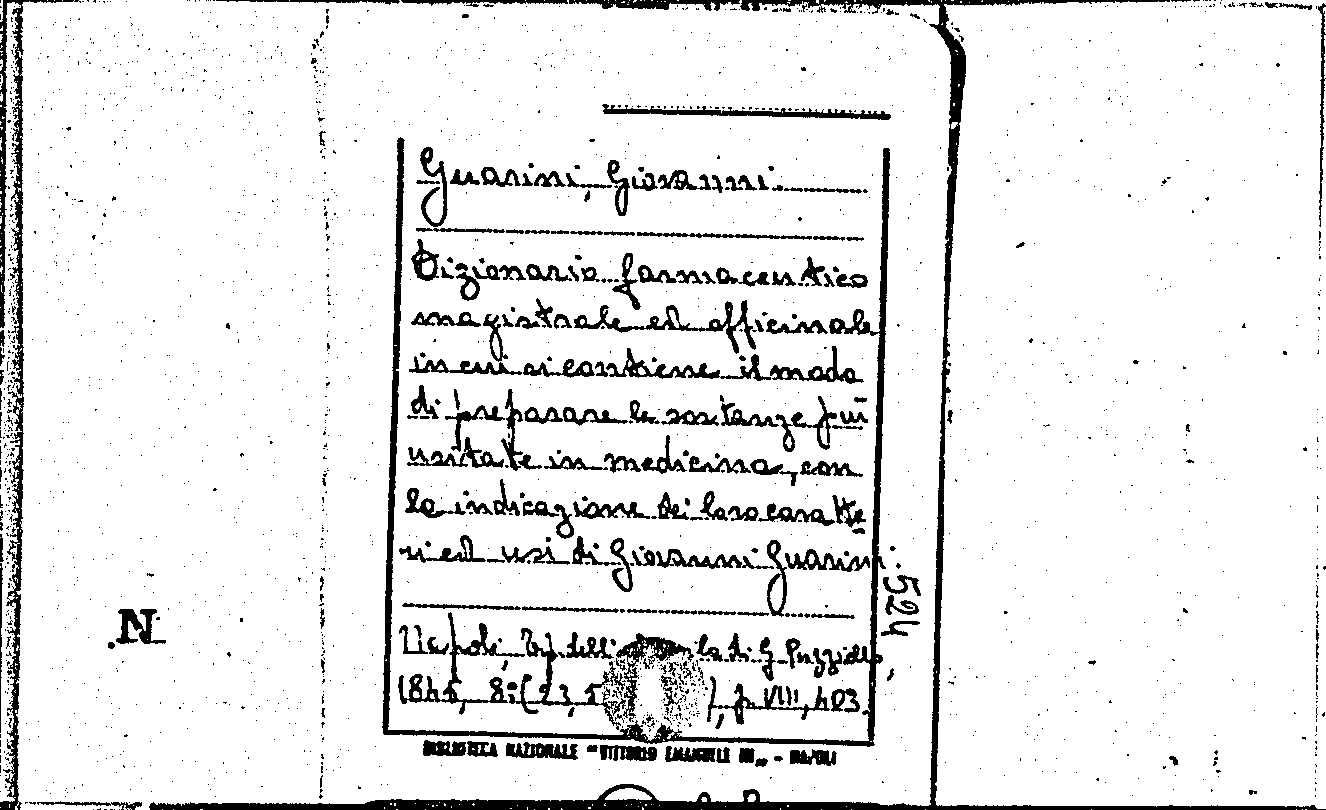 Guarini, Giovanni.
Dizionario farmaceutico
magistrale ed officinale
in cui si contiene il modo
di preparare le sostanze più
usitate in medicina, con
la indicazione dei loro caratte
ri ed usi di Giovanni Guarini.
524
Napoli, Tip. dell' di G. Puzziello,
1845, 8° (23,5 ), p. VIII, 403.
BIBLIOTECA NAZIONALE "VITTORIO EMANUELE III„ - NAPOLI
.N.